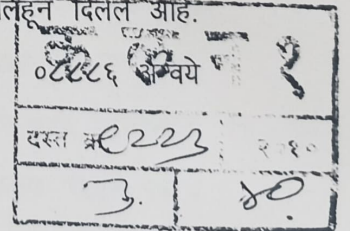 लिहून दिलेले आहे.
०८८८६ अन्वये १
दस्त क्र ९२२३ २०१०
३. ४०